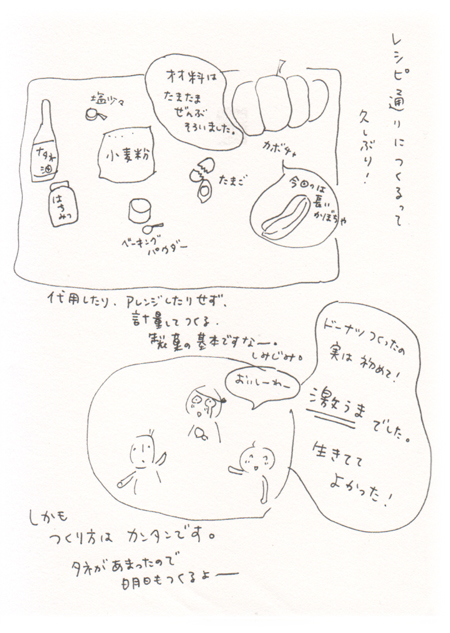 レシピ通りにつくるって
久しぶり！
材料は
たまたま
ぜんぶ
そろいました。
カボチャ
塩少々
ナタネ
油
小麦粉
たまご
はち
みつ
ベーキング
パウダー
今回は
長い
かぼちゃ
代用したり、アレンジしたりせず、
計量してつくる。
製菓の基本ですなー。
しみじみ。
おいしーわー
ドーナツつくったの
実は初めて！
激うまでした。
生きてて
よかった！
しかも
つくり方はカンタンです。
タネがあまったので
明日もつくるよー